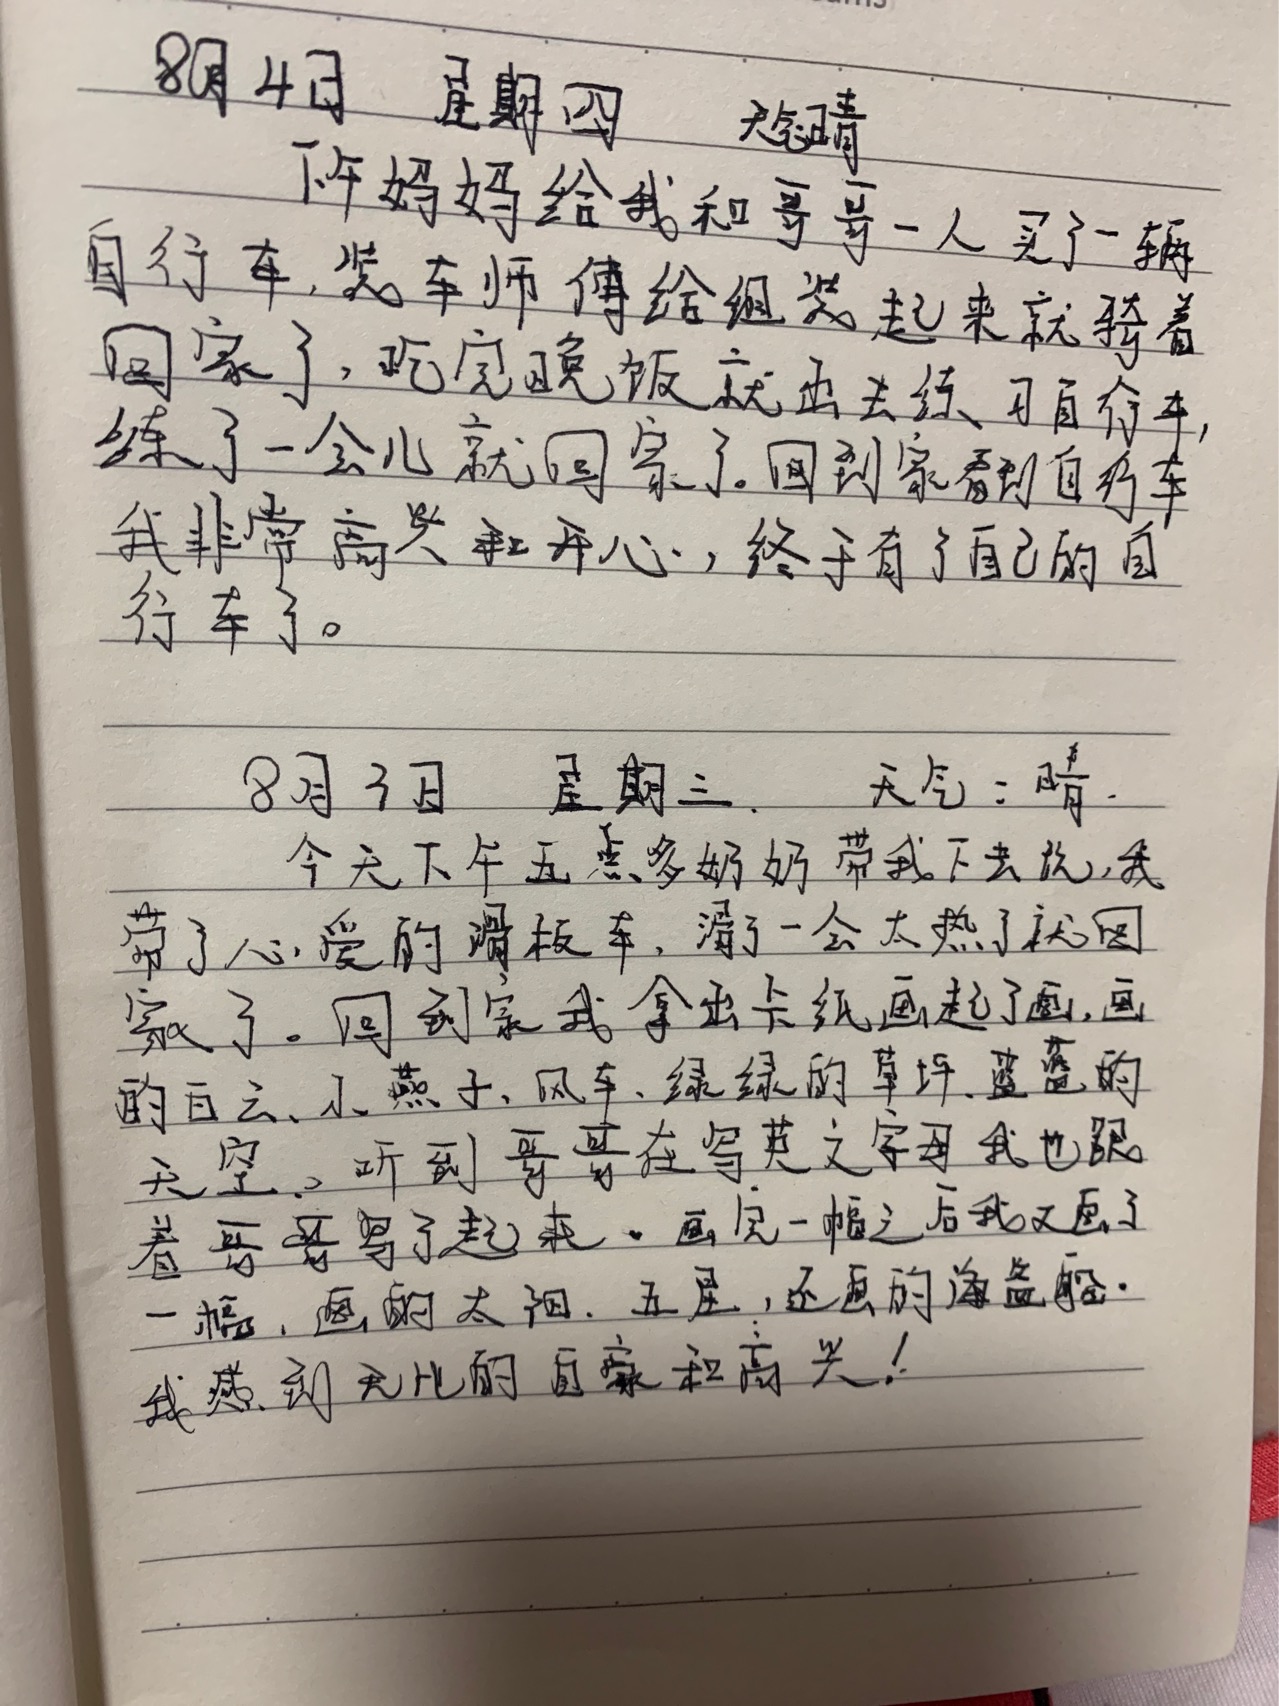 8月4日 星期四 天气晴
下午妈妈给我和哥哥一人买了一辆
自行车,装车师傅给组装起来就骑着
回家了,吃完晚饭就出去练习自行车,
练了一会儿就回家了。回到家看到自行车
我非常高兴和开心,终于有了自己的自
行车了。
8月3日 星期三. 天气:晴.
今天下午五点多奶奶带我下去玩,我
带了心爱的滑板车,滑了一会太热了就回
家了。回到家我拿出卡纸画起了画,画
的白云、小燕子、风车、绿绿的草坪、蓝蓝的
天空、听到哥哥在写英文字母我也跟
着哥哥写了起来.画完一幅之后我又画了
一幅,画的太阳.五星,还画的海盗船.
我感到无比的自豪和高兴!